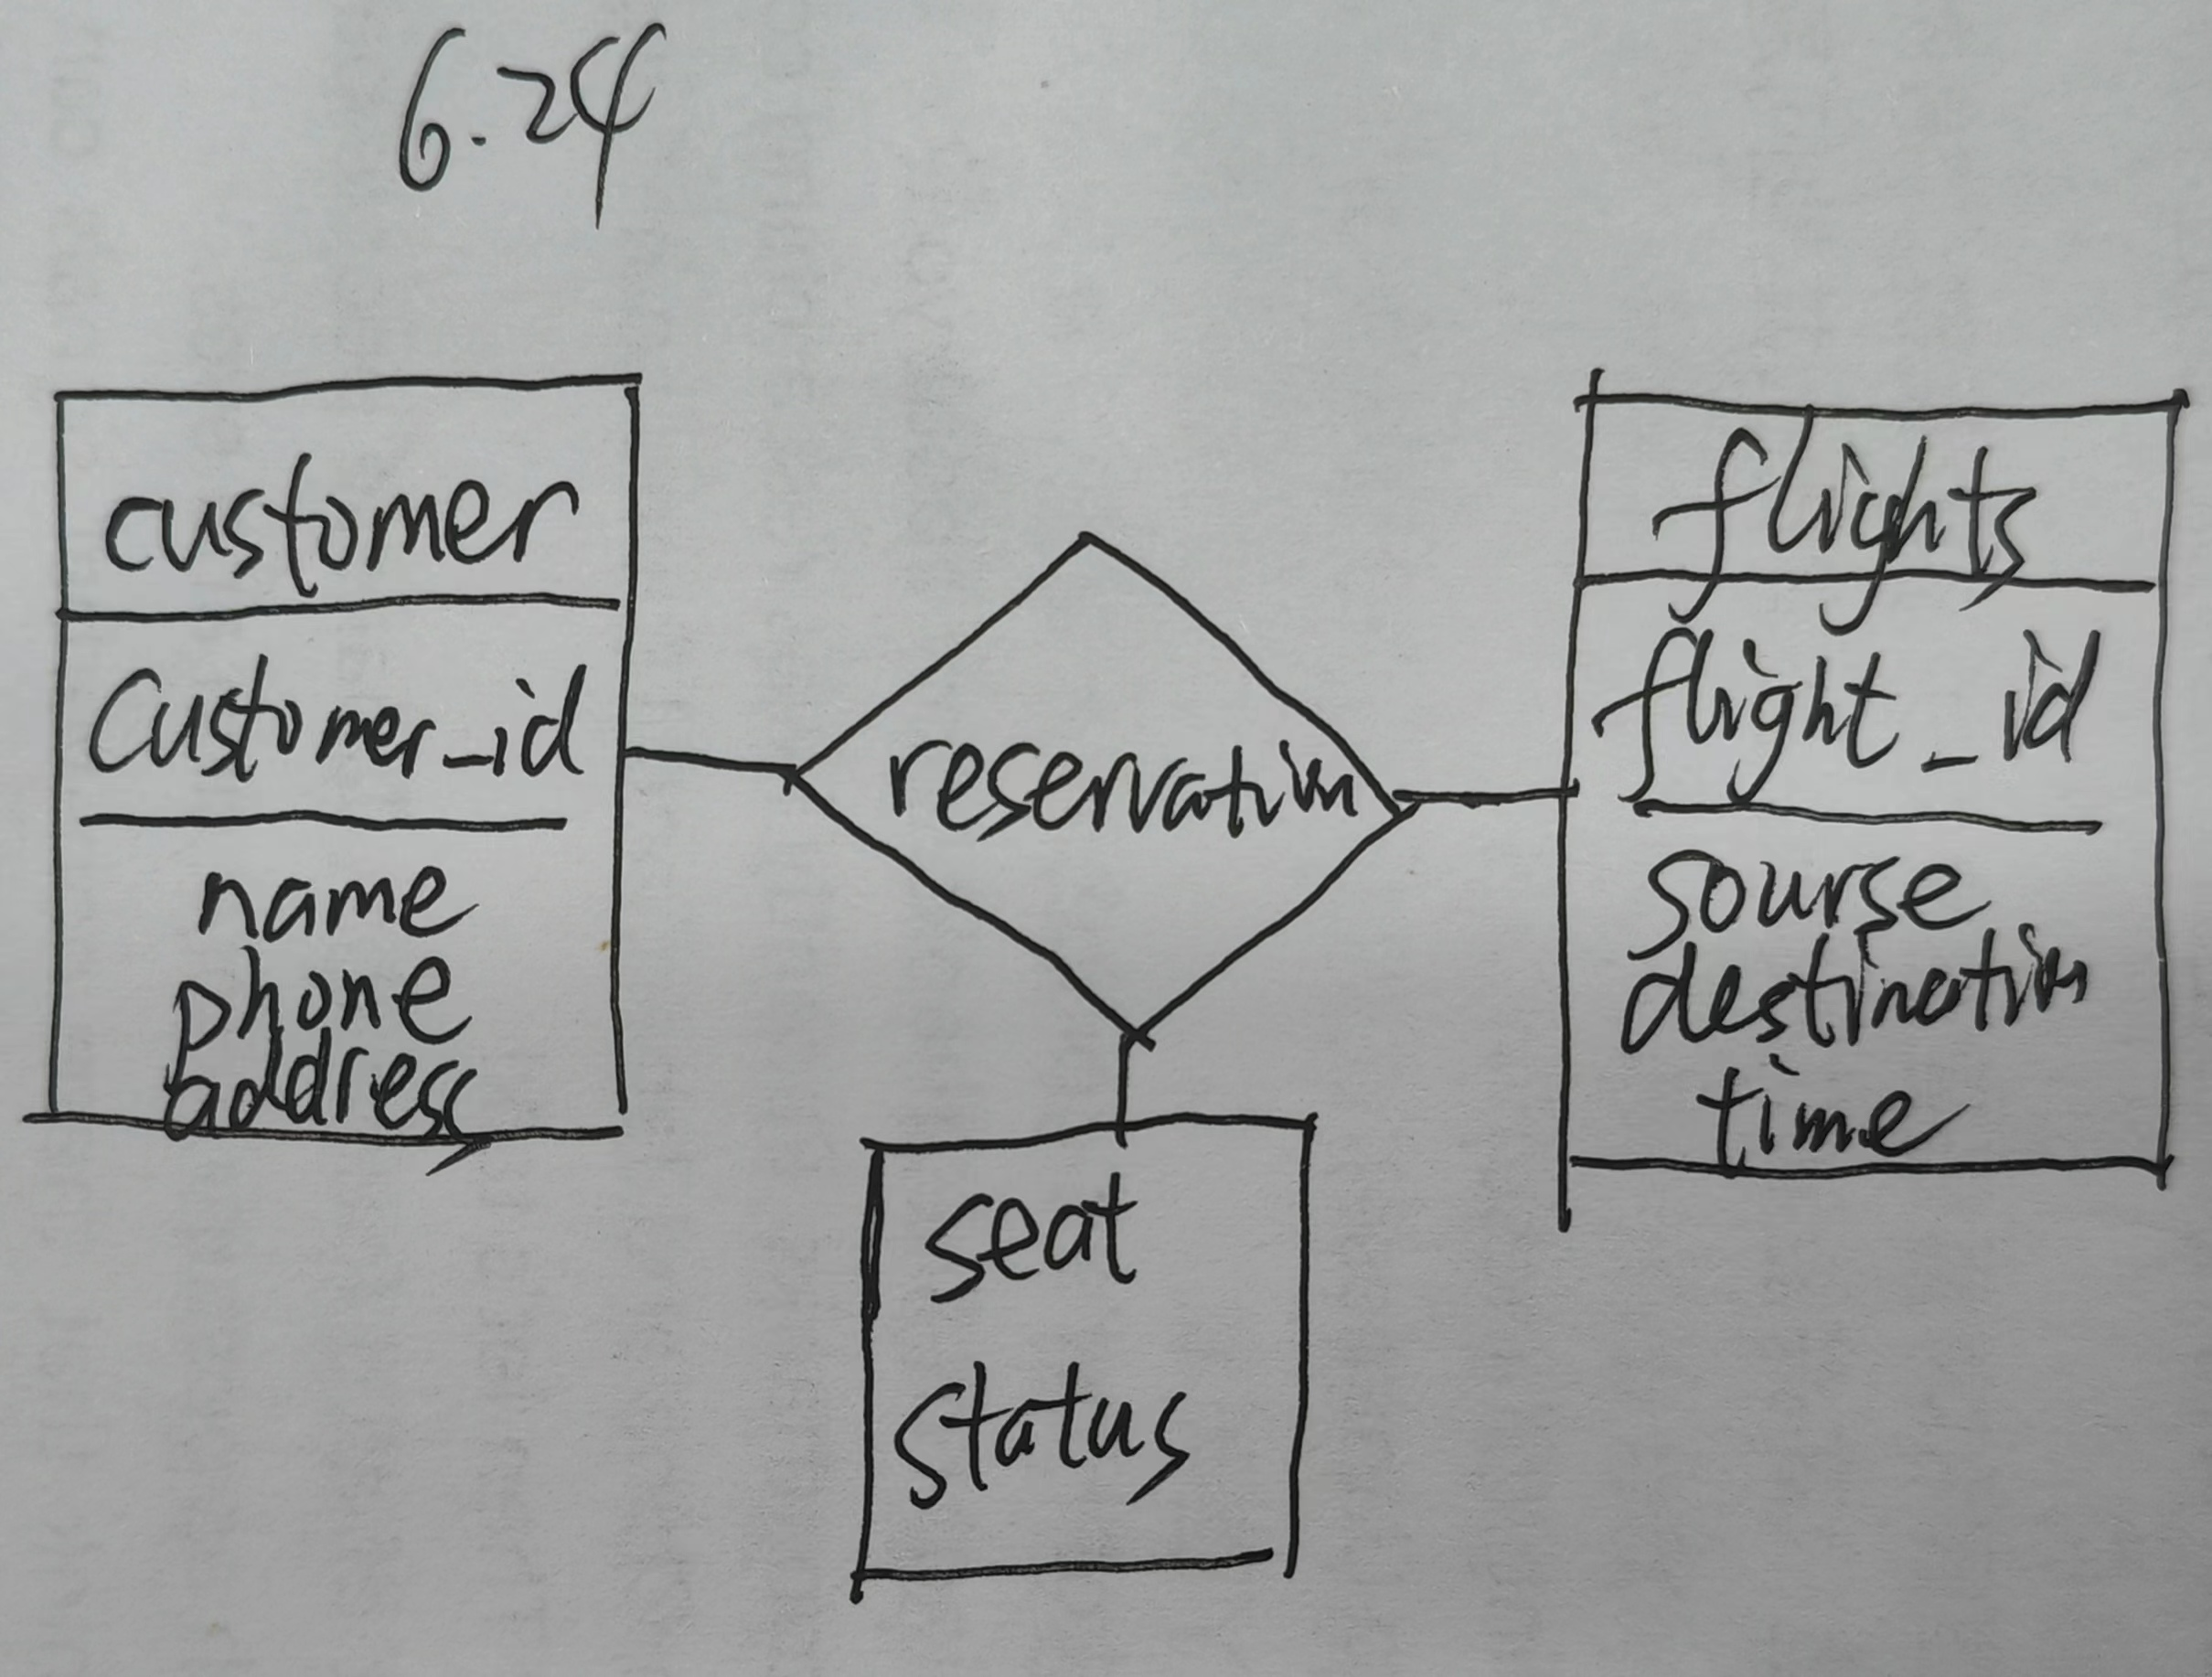 6.24
customer
Customer_id
name
phone
address
reservation
flights
flight_id
sourse
destination
time
seat
status